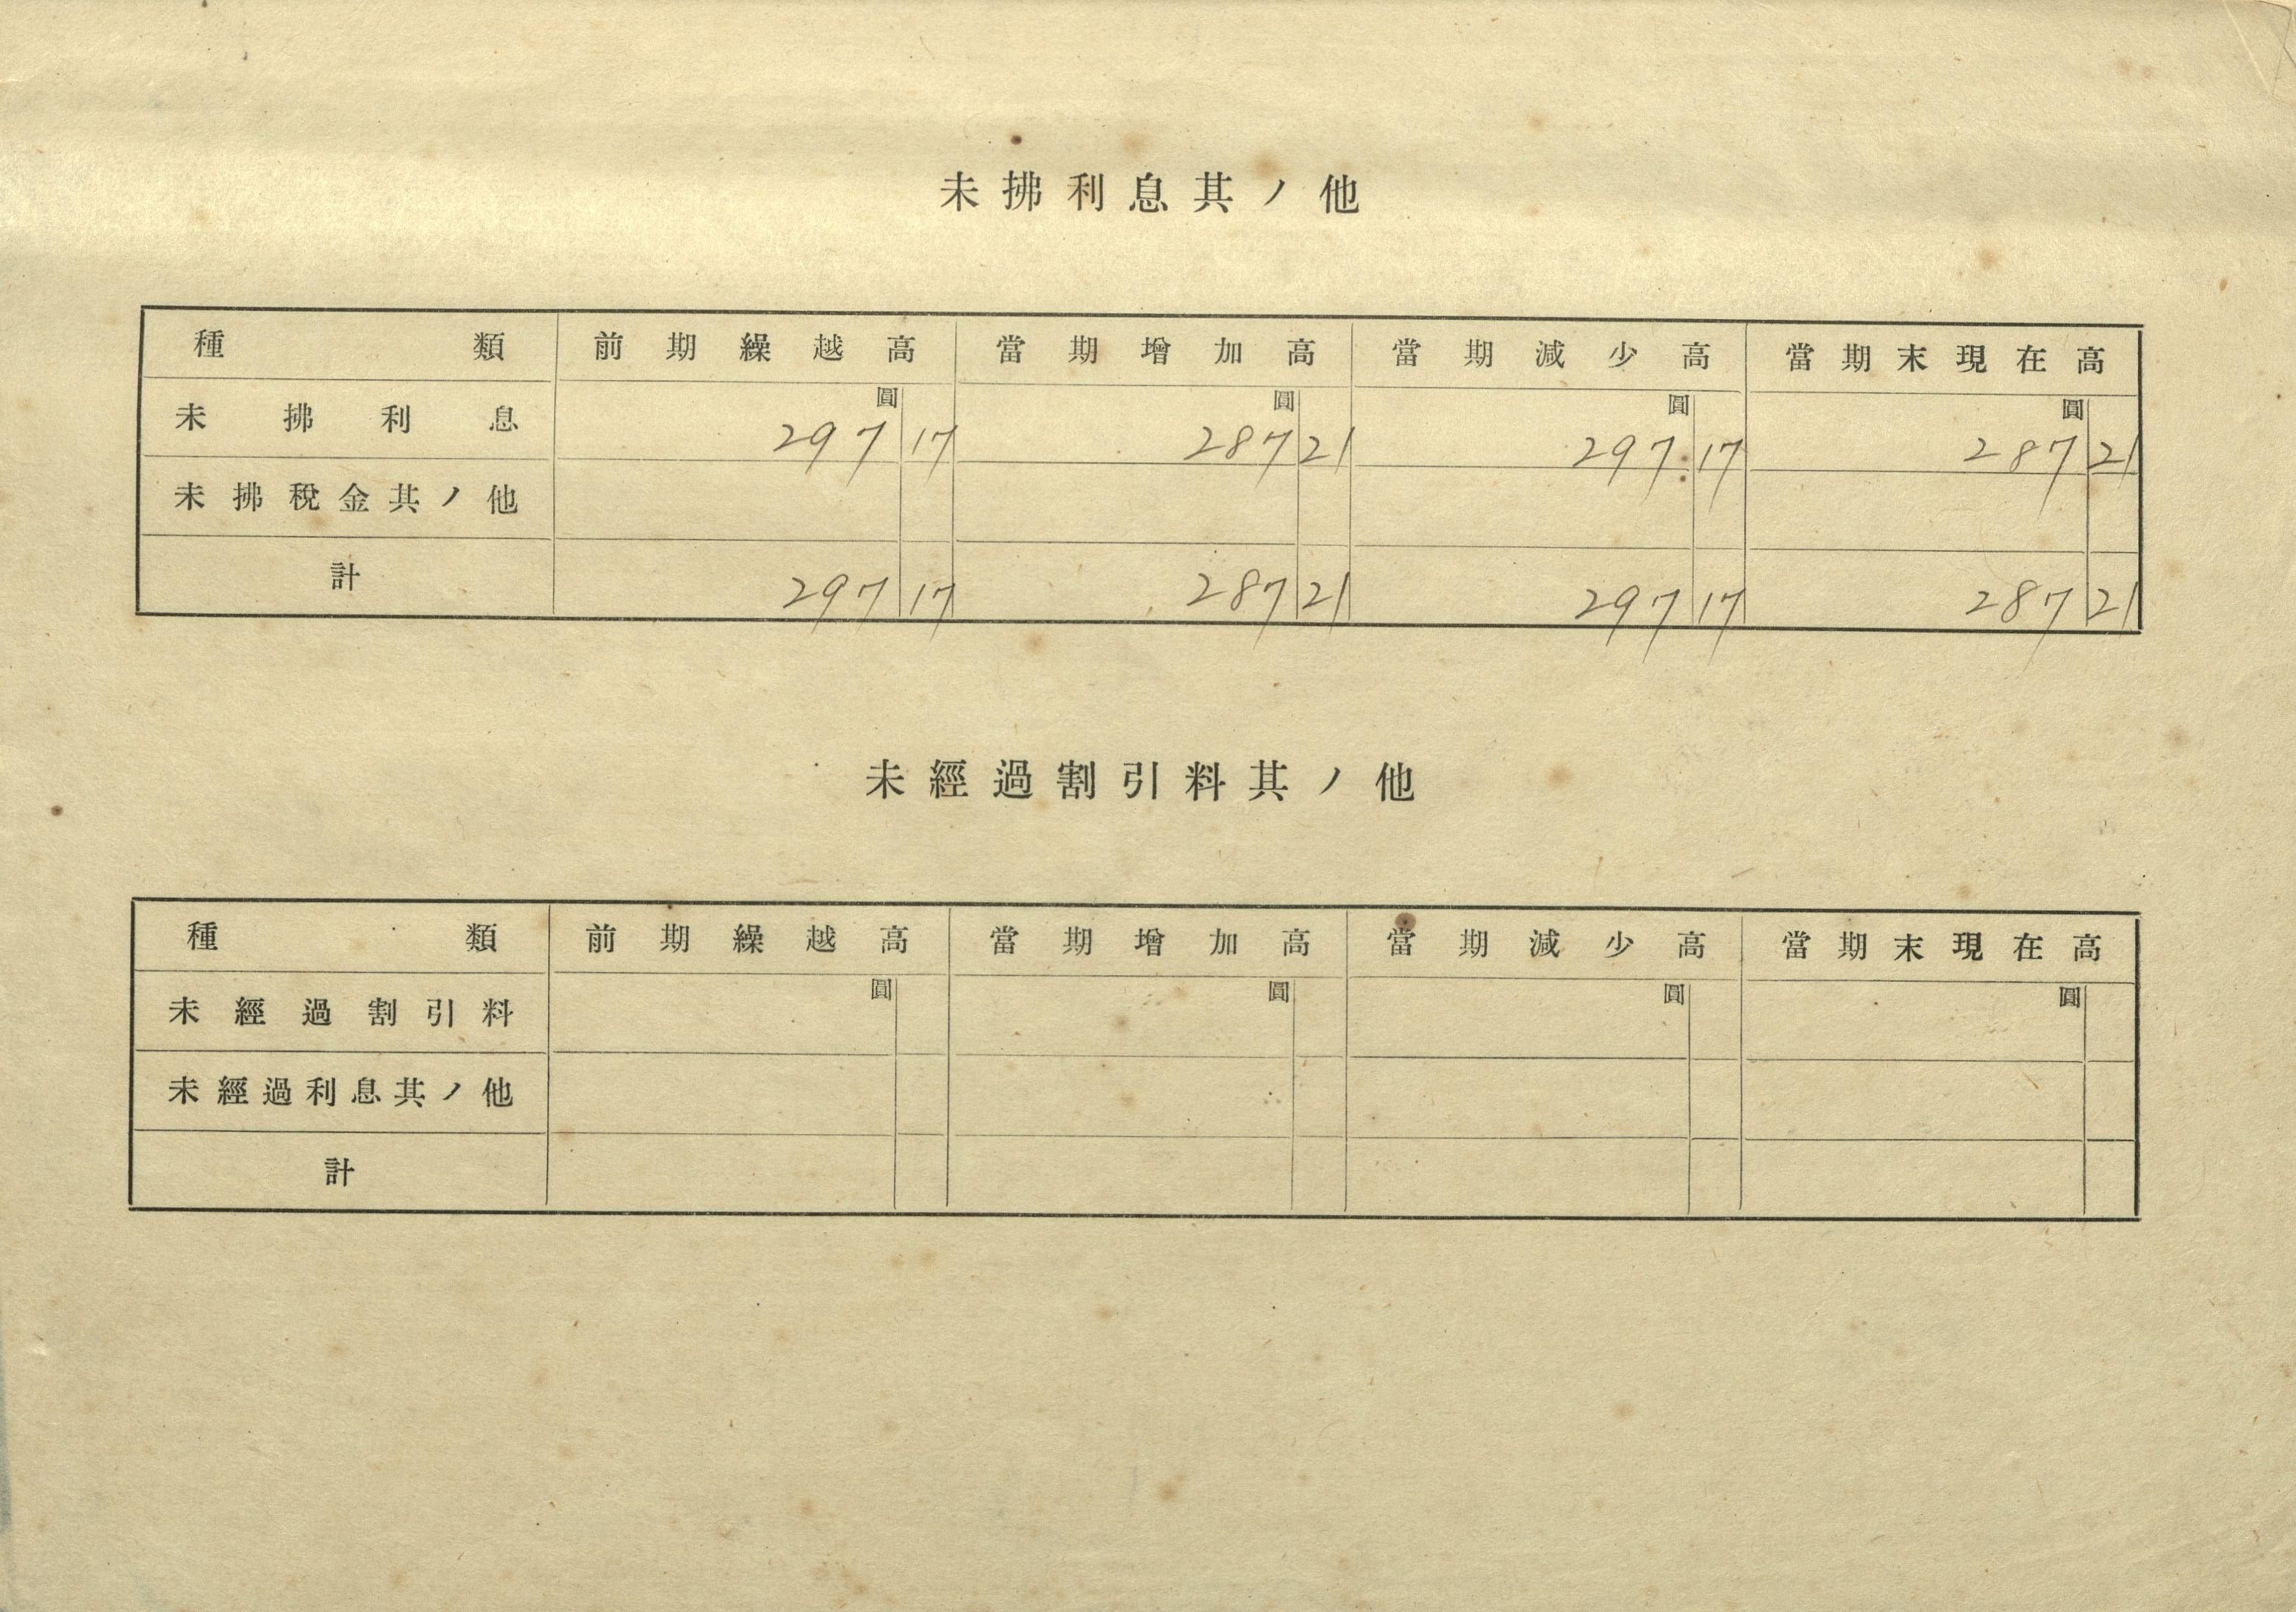 未拂利息其ノ他
種類 前期繰越高 當期增加高 當期減少高 當期末現在高
圓 圓 圓 圓
未拂利息 297 17 287 21 297 17 287 21
未拂稅金其ノ他
計 297 17 287 21 297 17 287 21
未經過割引料其ノ他
種類 前期繰越高 當期增加高 當期減少高 當期末現在高
圓 圓 圓 圓
未經過割引料
未經過利息其ノ他
計